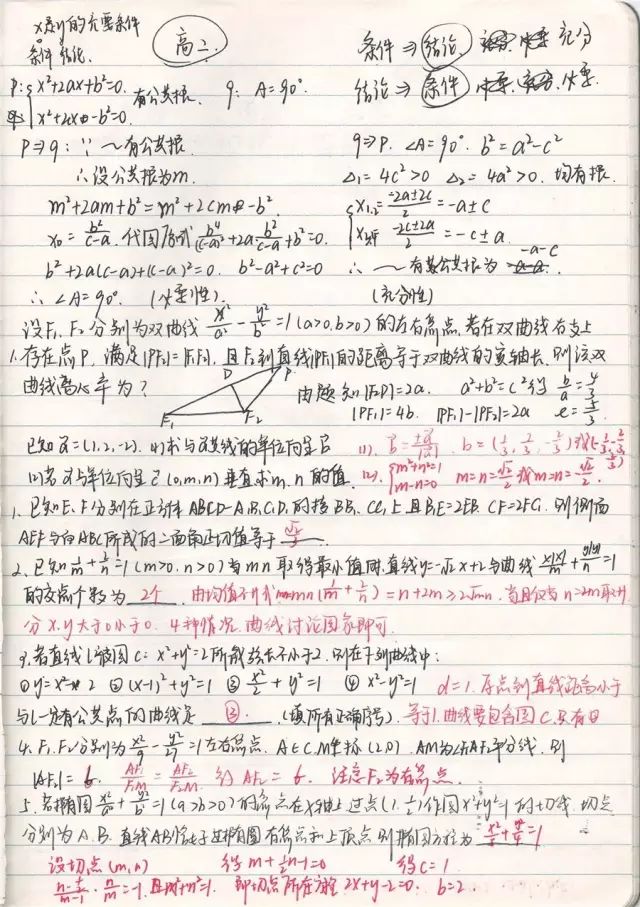 x是y的充要条件
条件 结论.
高二.
条件 ⇒ 结论 充分
结论 ⇒ 条件 必要.
P: { x²+2ax+b²=0. 有公共根. q: A=90°.
x²+2cx-b²=0.
P⇒q: ∵ ~有公共根.
∴设公共根为m.
m²+2am+b²=m²+2cm-b².
x₀=b²/(c-a). 代回原式 b⁴/(c-a)²+2a b²/(c-a)+b²=0.
b²+2a(c-a)+(c-a)²=0. b²-a²+c²=0
∴ ∠A=90°. (必要性).
q⇒P. ∠A=90°. b²=a²-c²
Δ₁=4c²>0 Δ₂=4a²>0. 均有根.
{ x₁,₂=(-2a±2c)/2=-a±c
(-2c±2a)/2=-c±a.
∴ ~有公共根为 -a-c.
(充分性)
设F₁、F₂分别为双曲线 x²/a²-y²/b²=1(a>0,b>0)的左右焦点.若在双曲线右支上
1.存在点P,满足|PF₂|=|F₁F₂|,且F₂到直线PF₁的距离等于双曲线的实轴长.则该双
曲线离心率为?
D P
F₁ F₂
由题知|F₂D|=2a. a²+b²=c²得 b/a=4/3
|PF₁|=4b. |PF₁|-|PF₂|=2a e=5/3.
已知a=(1,2,-2). (1)求与a共线的单位向量b
(1). b=±a/|a|. b=(1/3,2/3,-2/3)或(-1/3,-2/3,2/3)
(2)若a与单位向量c(0,m,n)垂直求m,n的值.
(2). { m²+n²=1 m-n=0 m=n=√2/2或m=n=-√2/2.
1.已知E、F分别在正方体ABCD-A₁B₁C₁D₁的棱BB₁、CC₁上且B₁E=2EB、CF=2FC₁.则侧面
AEF与面ABC所成的二面角正切值等于 √2/3.
2.已知1/m+2/n=1(m>0,n>0)当mn取得最小值时,直线y=-√2x+2与曲线x|x|/m+y|y|/n=1
的交点个数为 2个. 由均值不等式 mn(1/m+2/n)=n+2m≥2√2mn. 当且仅当n=2m取等
分x.y大于0小于0. 4种情况.曲线讨论图象即可.
3.若直线l被圆C: x²+y²=2所截弦长不小于2.则在下列曲线中:
①y=x²-2 ②(x-1)²+y²=1 ③x²/2+y²=1 ④x²-y²=1 d=1.原点到直线距离小于
与l一定有公共点的曲线是 ③. (填所有正确序号). 等于1.曲线要包含圆C.只有③
4.F₁、F₂分别为x²/9-y²/27=1左右焦点. A∈C,M坐标(2,0). AM为∠F₁AF₂平分线.则
|AF₂|=6. AF₁/F₁M=AF₂/F₂M. 得AF₂=6. 注意F₂为右焦点.
5.若椭圆x²/a²+y²/b²=1(a>b>0)的焦点在x轴上过点(1,1/2)作圆x²+y²=1的切线.切点
分别为A、B.直线AB恰过椭圆右焦点和上顶点则椭圆方程为 x²/5+y²/4=1
设切点(m,n) 得m+1/2n-1=0 得c=1.
(n-1/2)/(m-1)·n/m=-1.且m²+n²=1. 即切点所在方程.2x+y-2=0. b=2